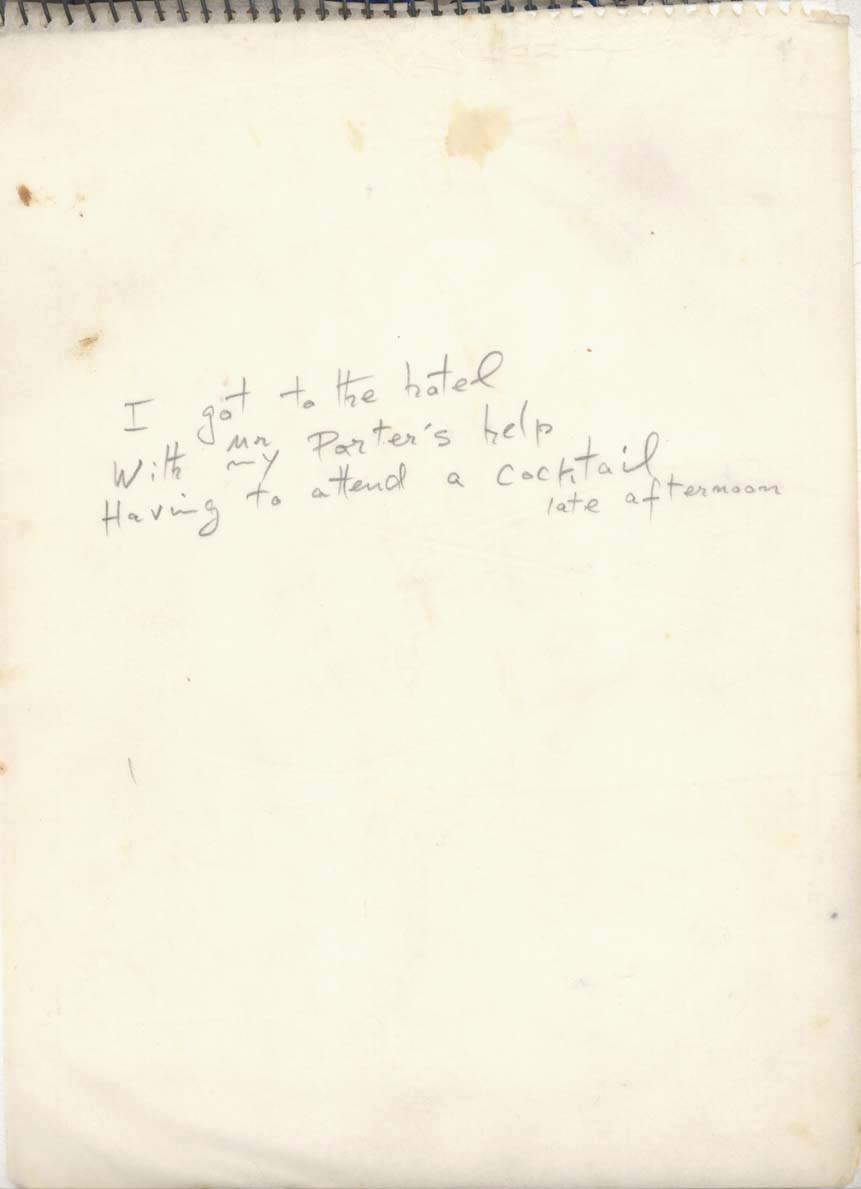 I got to the hotel
mr
With my Porter's help
Having to attend a cocktail
late afternoon